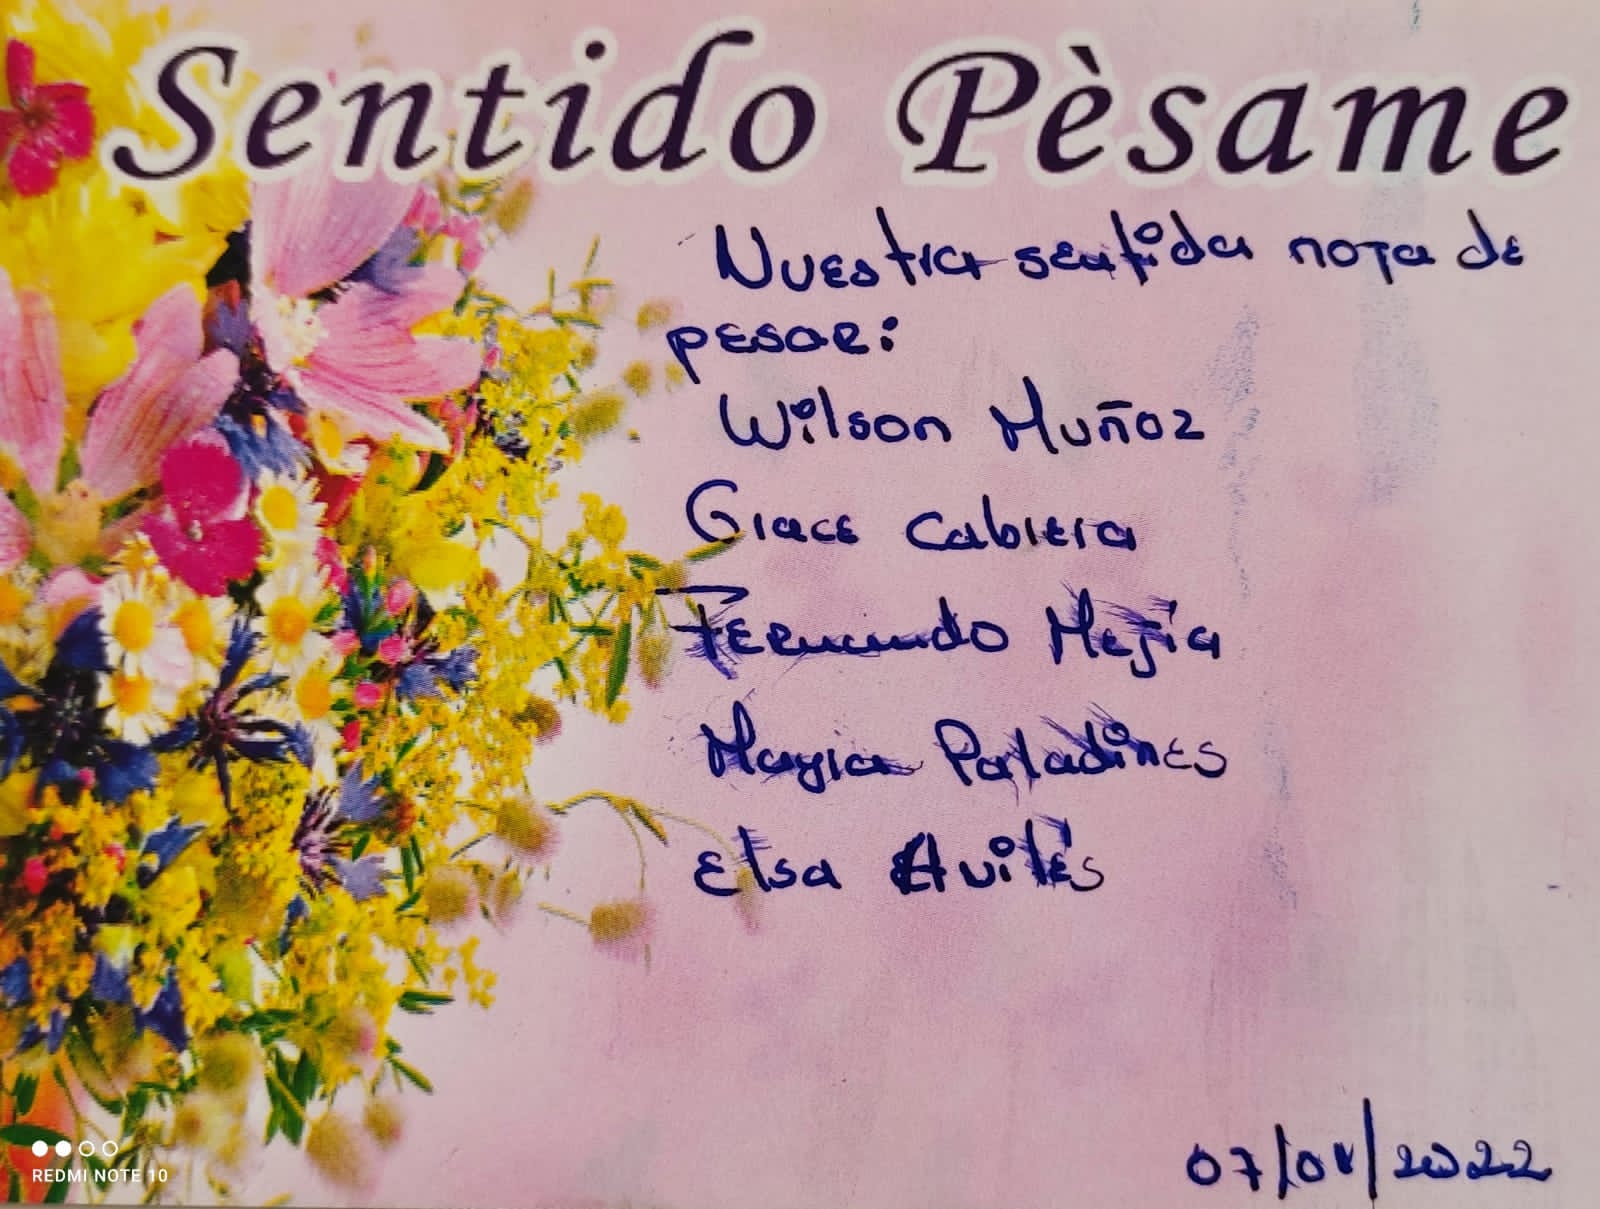 Sentido Pèsame
Nuestra sentida nota de
pesar:
Wilson Muñoz
Grace Cabrera
Fernando Mejía
Mayra Paladines
Elsa Avilés
07/04/2022
REDMI NOTE 10